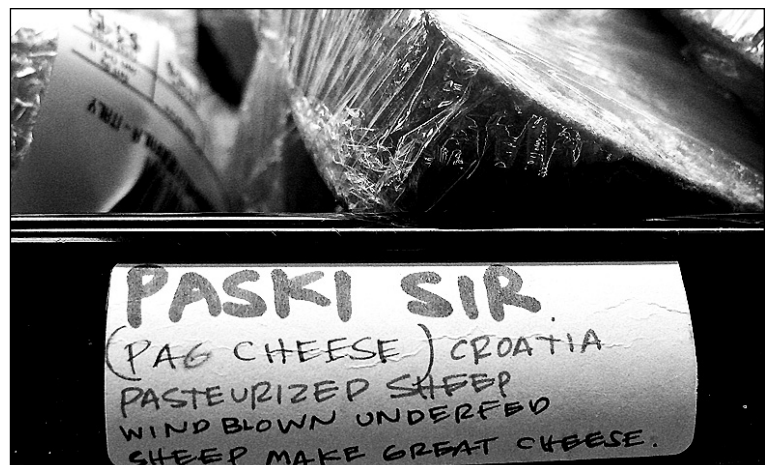 PASKI SIR.
(PAG CHEESE) CROATIA
PASTEURIZED SHEEP
WINDBLOWN UNDERFED
SHEEP MAKE GREAT CHEESE.